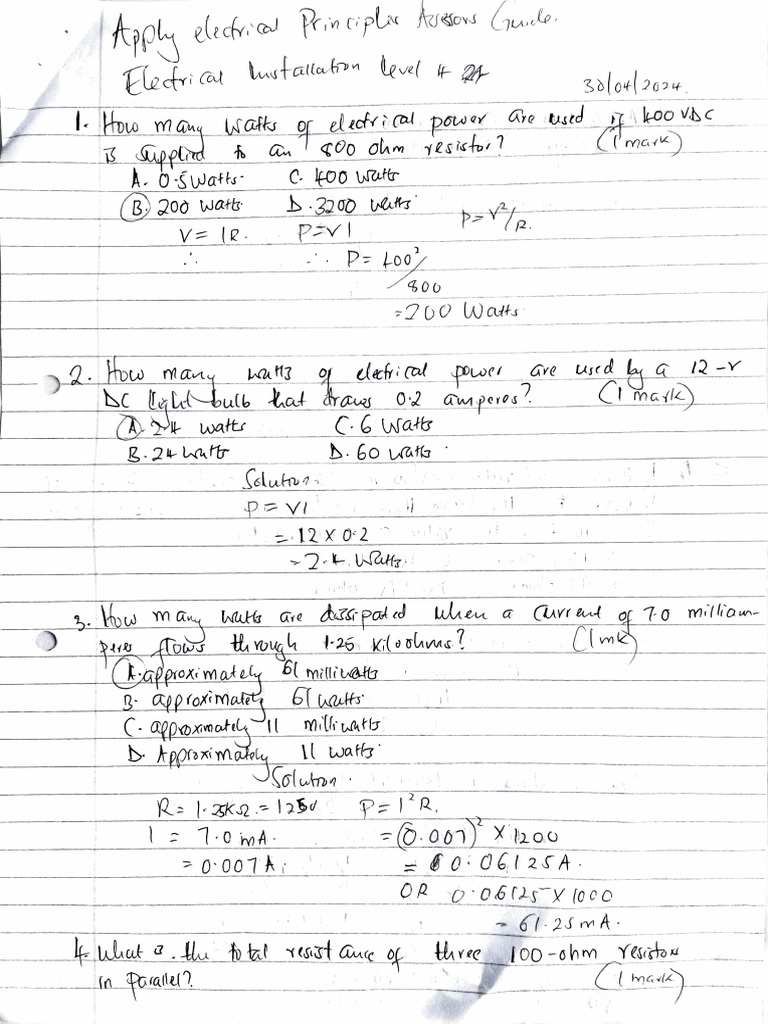 Apply electrical Principles Assessors Guide.
Electrical Installation level 4
30/04/2024.
1. How many Watts of electrical power are used if 400 VDC
is supplied to an 800 ohm resistor? (1 mark)
A. 0.5 Watts. C. 400 Watts
B. 200 Watts D. 3200 Watts.
V = IR. P=VI P=V²/R.
∴ ∴ P= 400²/
800
=200 Watts
2. How many watts of electrical power are used by a 12-v
DC light bulb that draws 0.2 amperes? (1 mark)
A. 2.4 watts C. 6 Watts
B. 24 watts D. 60 watts
Solution.
P = VI
= 12 x 0.2
= 2.4 Watts.
3. How many watts are dissipated when a current of 7.0 milliam-
peres flows through 1.25 kiloohms? (1mk)
A. approximately 61 milliwatts
B. approximately 61 watts
C. approximately 11 milliwatts
D. Approximately 11 watts
Solution.
R= 1.25KΩ = 1250 P= I²R.
I = 7.0 mA. = (0.007)² x 1200
= 0.007A = 0.06125A.
OR 0.06125 x 1000
= 61.25mA.
4. What is the total resistance of three 100-ohm resistors
in parallel? (1 mark)